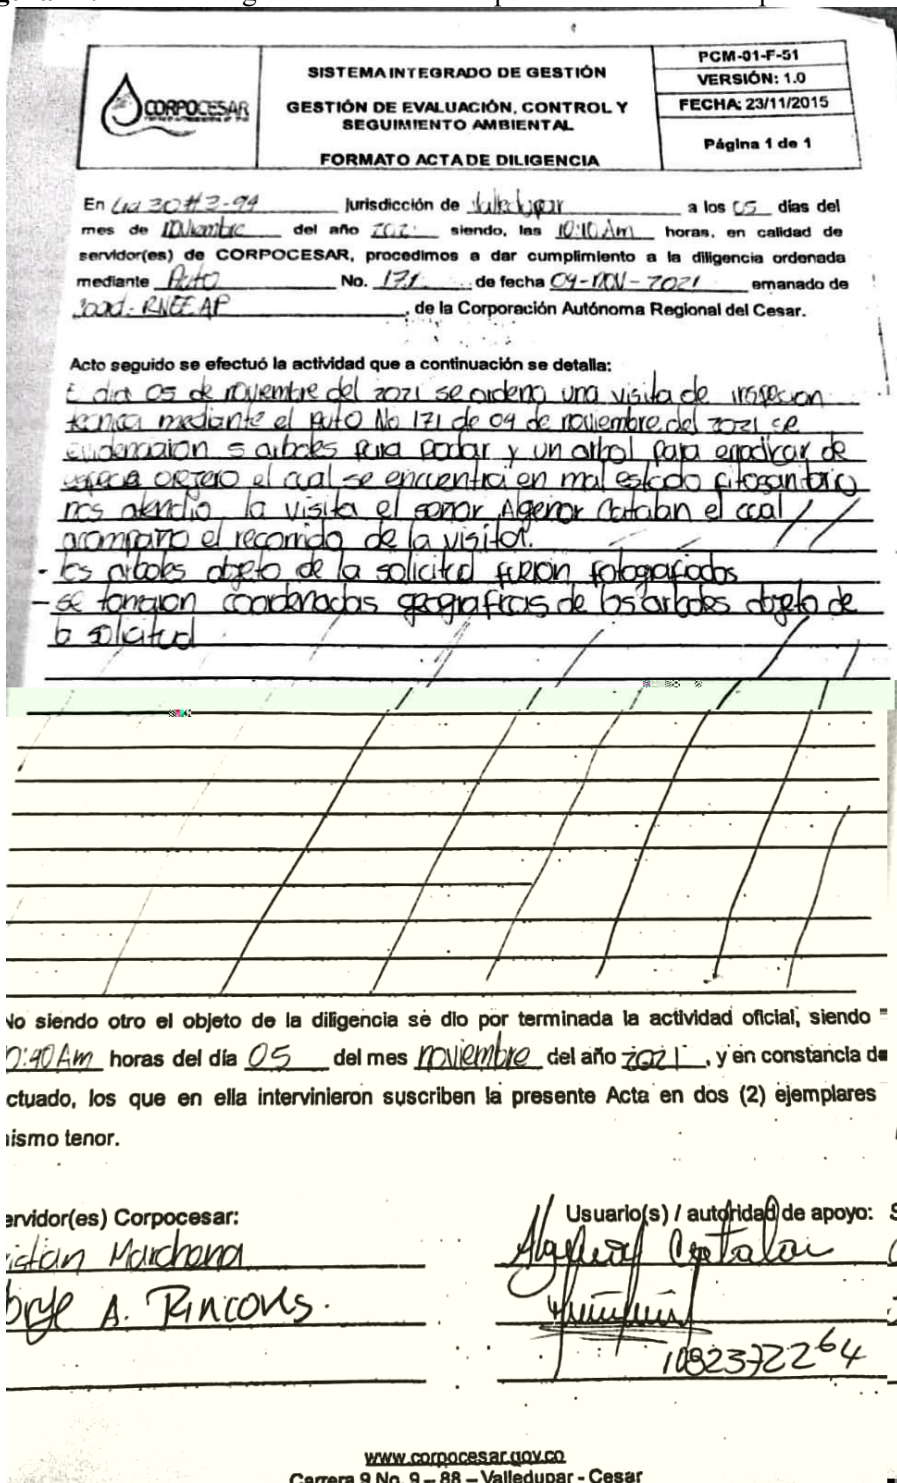 CORPOCESAR
SISTEMA INTEGRADO DE GESTIÓN
GESTIÓN DE EVALUACIÓN, CONTROL Y
SEGUIMIENTO AMBIENTAL
FORMATO ACTA DE DILIGENCIA
PCM-01-F-51
VERSIÓN: 1.0
FECHA: 23/11/2015
Página 1 de 1
En 30 # 3-94 jurisdicción de Valledupar a los 05 días del
mes de noviembre del año 202 siendo, las 10:10 Am horas, en calidad de
servidor(es) de CORPOCESAR, procedimos a dar cumplimiento a la diligencia ordenada
mediante Auto No. 171 de fecha 04-NOV-2021 emanado de
de la Corporación Autónoma Regional del Cesar.
Acto seguido se efectuó la actividad que a continuación se detalla:
dia 05 de noviembre del 2021 se ordeno una visita de inspecion
tecnica mediante el Auto No 171 de 04 de noviembre del 2021 se
evidenciaron 5 arboles para podar y un arbol para erradicar de
especie el cual se encuentra en mal estado fitosanitario
nos atendio la visita el señor Algenor Catalan el cual
acompaño el recorrido de la visita.
- los arboles objeto de la solicitud fueron fotografiados
- se tomaron coordenadas geograficas de los arboles objeto de
la solicitud
No siendo otro el objeto de la diligencia se dio por terminada la actividad oficial, siendo
0:40 Am horas del día 05 del mes noviembre del año 2021, y en constancia de
ctuado, los que en ella intervinieron suscriben la presente Acta en dos (2) ejemplares
nismo tenor.
ervidor(es) Corpocesar:
Usuario(s) / autoridad de apoyo:
istian Marchena
Catalan
orge A. Rincons.
1082372264
www.corpocesar.gov.co
Carrera 9 No. 9 – 88 – Valledupar - Cesar